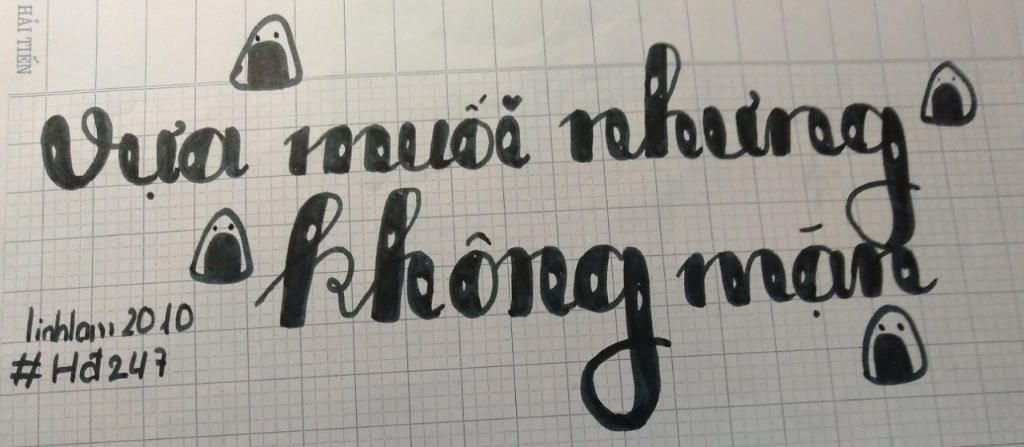 HẢI TIẾN
Vựa muối nhưng
không mặn
linhlam2010
#Hđ247